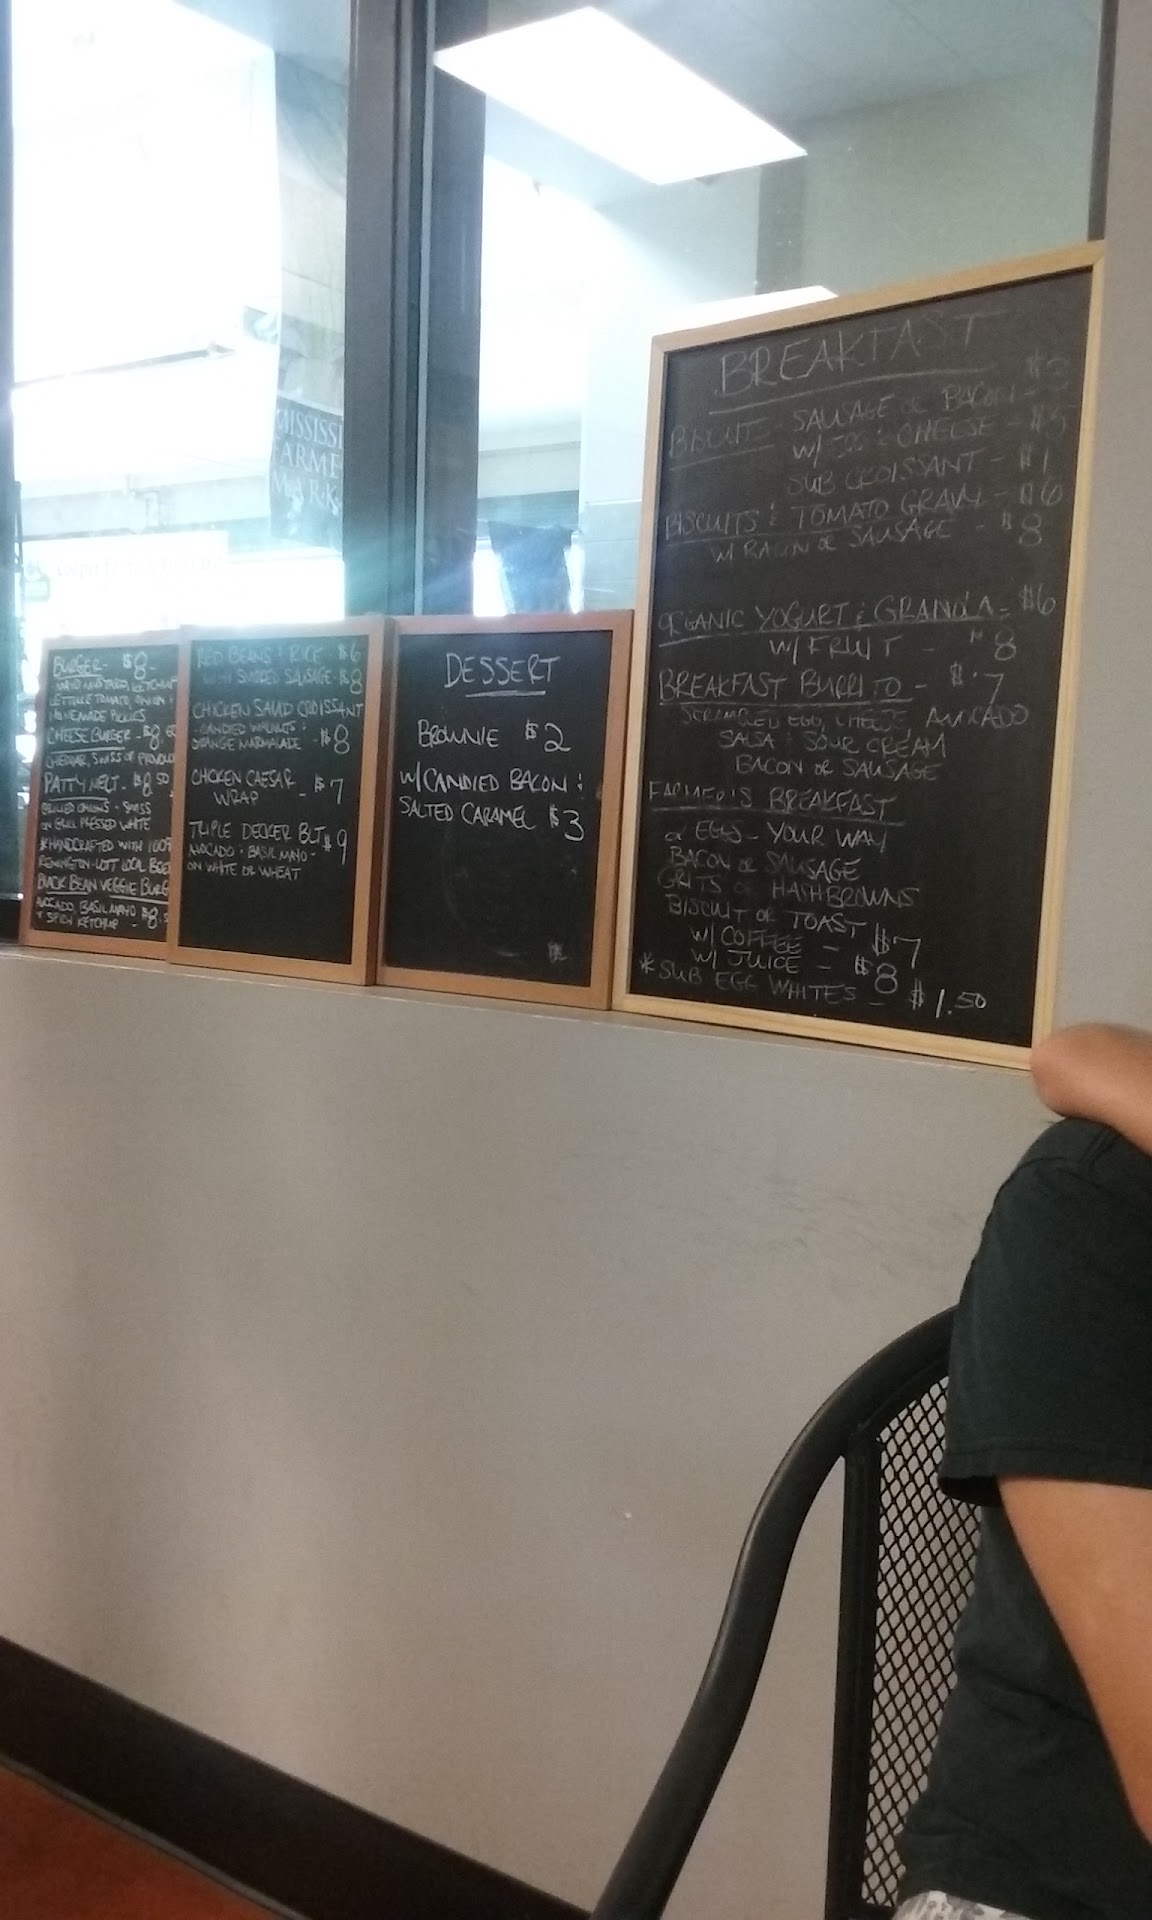 MISSISS
ARME
MARK
BURGER - $8 -
MAYO, MUSTARD, KETCHUP
LETTUCE, TOMATO, ONION &
HOMEMADE PICKLES
CHEESE BURGER - $8.
CHEDDAR, SWISS OR PROVOLO
PATTY MELT - $8.50
GRILLED ONIONS - SWISS
ON GRILL PRESSED WHITE
*HANDCRAFTED WITH 100%
REMINGTON-LOTT LOCAL BEE
BLACK BEAN VEGGIE BURG
AVOCADO, BASIL MAYO
& SPICY KETCHUP - $8.5
RED BEANS & RICE $6
WITH SMOKED SAUSAGE - $8
CHICKEN SALAD CROISSANT
- CANDIED WALNUTS &
ORANGE MARMALADE - $8
CHICKEN CAESAR
WRAP - $7
TRIPLE DECKER BLT $9
AVOCADO & BASIL MAYO -
ON WHITE OR WHEAT
DESSERT
BROWNIE $2
W/ CANDIED BACON &
SALTED CARAMEL $3
BREAKFAST
BISCUITS - SAUSAGE OR BACON - $3
W/ EGG & CHEESE - $5
SUB CROISSANT - $1
BISCUITS & TOMATO GRAVY - $6
W/ BACON OR SAUSAGE - $8
ORGANIC YOGURT & GRANOLA - $6
W/ FRUIT - $8
BREAKFAST BURRITO - $7
SCRAMBLED EGG, CHEESE, AVOCADO
SALSA & SOUR CREAM
BACON OR SAUSAGE
FARMER'S BREAKFAST
2 EGGS - YOUR WAY
BACON OR SAUSAGE
GRITS OR HASHBROWNS
BISCUIT OR TOAST
W/ COFFEE - $7
W/ JUICE - $8
*SUB EGG WHITES - $1.50